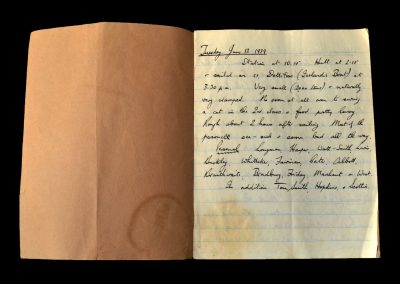 Tuesday June 13 1939
Station at 10.15 Hull at 2.15
+ sailed on SS, Dettifoss (Icelandic Boat) at
3.30 p.m. Very small (2000 tons) + naturally
very cramped. No room at all even to swing
a cat in the 2nd class + food pretty lousy
Rough about 2 hours after sailing Most of the
personnel sea-sick + some bad all the way.
Personnel Longman Harper, Watt-Smith Lewis,
Whittaker, Farriman, Abbott,
Braithwaite, Bradbury, Friday, Marchant + West.
In addition Tom, Smith Hopkins, + Scottie.